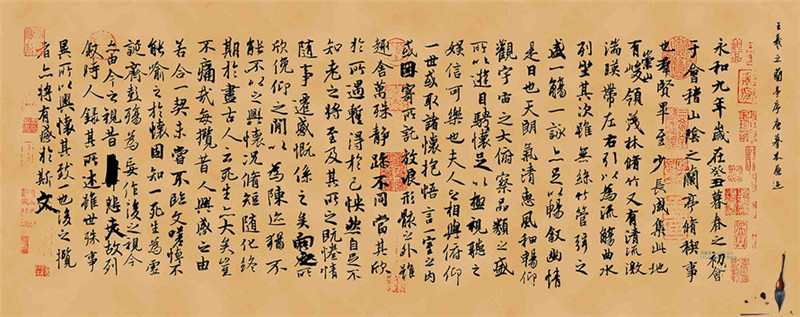 王羲之蘭亭序唐摹本原迹
永和九年歲在癸丑暮春之初會
于會稽山陰之蘭亭脩稧事
也群賢畢至少長咸集此地
有崇山峻領茂林脩竹又有清流激
湍暎帶左右引以為流觴曲水
列坐其次雖無絲竹管弦之
盛一觴一詠亦足以暢敘幽情
是日也天朗氣清惠風和暢仰
觀宇宙之大俯察品類之盛
所以遊目騁懷足以極視聽之
娛信可樂也夫人之相與俯仰
一世或取諸懷抱悟言一室之內
或因寄所託放浪形骸之外雖
趣舍萬殊靜躁不同當其欣
於所遇蹔得於己怏然自足不
知老之將至及其所之既惓情
隨事遷感慨係之矣向之所
欣俛仰之閒以為陳迹猶不
能不以之興懷況脩短隨化終
期於盡古人云死生亦大矣豈
不痛哉每攬昔人興感之由
若合一契未嘗不臨文嗟悼不
能喻之於懷固知一死生為虛
誕齊彭殤為妄作後之視今
亦由今之視昔悲夫故列
敘時人錄其所述雖世殊事
異所以興懷其致一也後之攬
者亦將有感於斯文